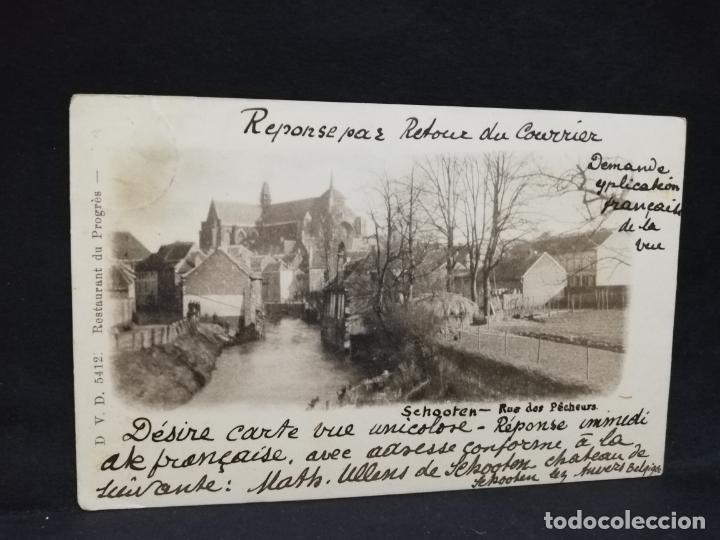 Reponse par Retour du Courrier
Demande
xplication
française
de la
vue
D V. D. 5412: Restaurant du Progrès —
Schooten — Rue des Pêcheurs.
Désire carte vue unicolore - Réponse immedi
ate française, avec adresse conforme à la
suivante : Math. Ullens de Schooten chateau de
Schooten lez Anvers Belgique
todocoleccion.net